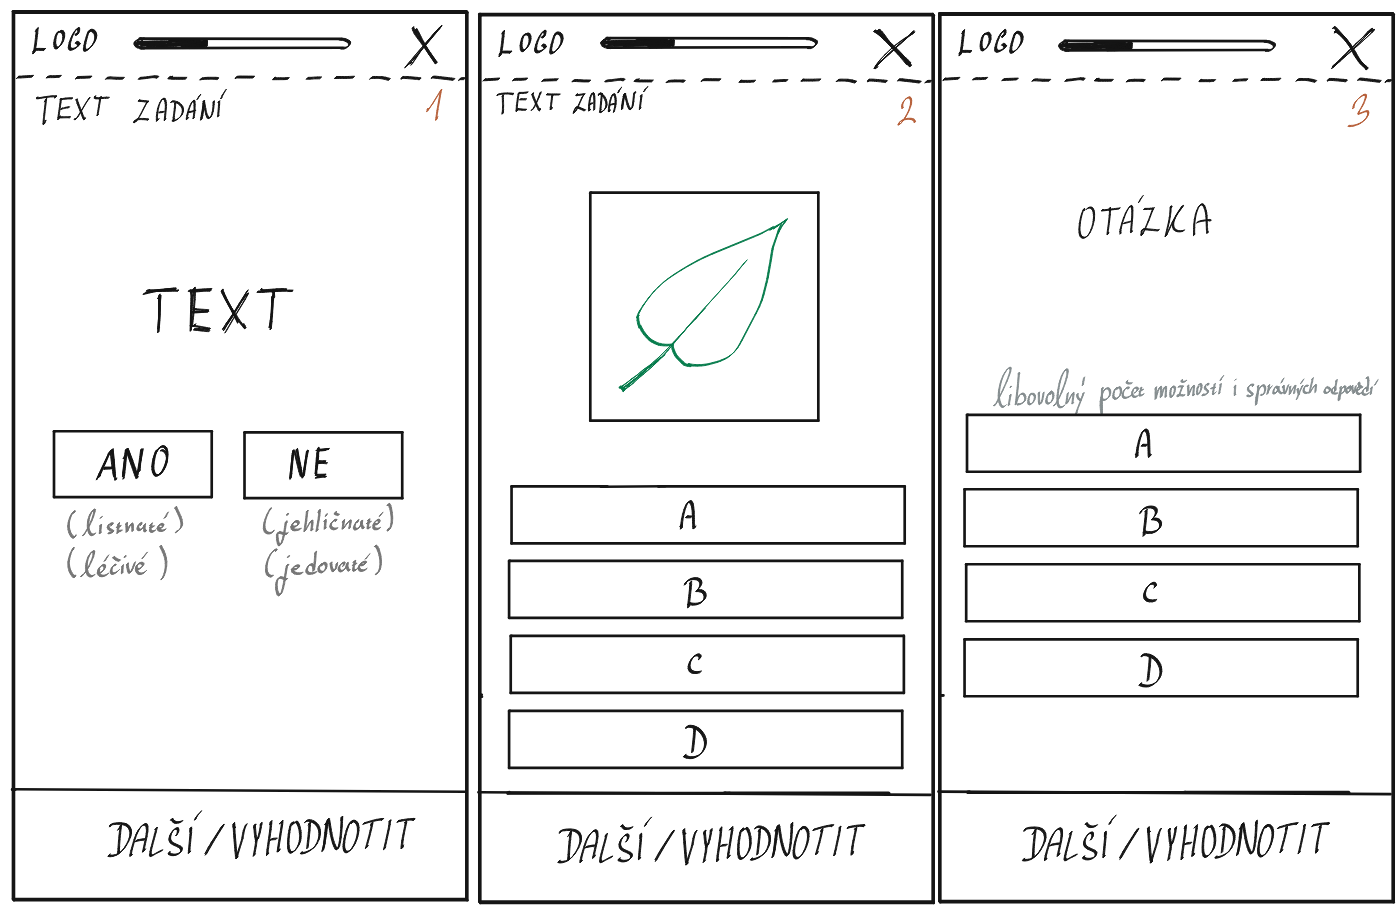 LOGO
X
TEXT ZADÁNÍ
1
TEXT
ANO
NE
(listnaté)
(jehličnaté)
(léčivé)
(jedovaté)
DALŠÍ/VYHODNOTIT
LOGO
X
TEXT ZADÁNÍ
2
A
B
C
D
DALŠÍ/VYHODNOTIT
LOGO
X
3
OTÁZKA
libovolný počet možností i správných odpovědí
A
B
C
D
DALŠÍ/VYHODNOTIT